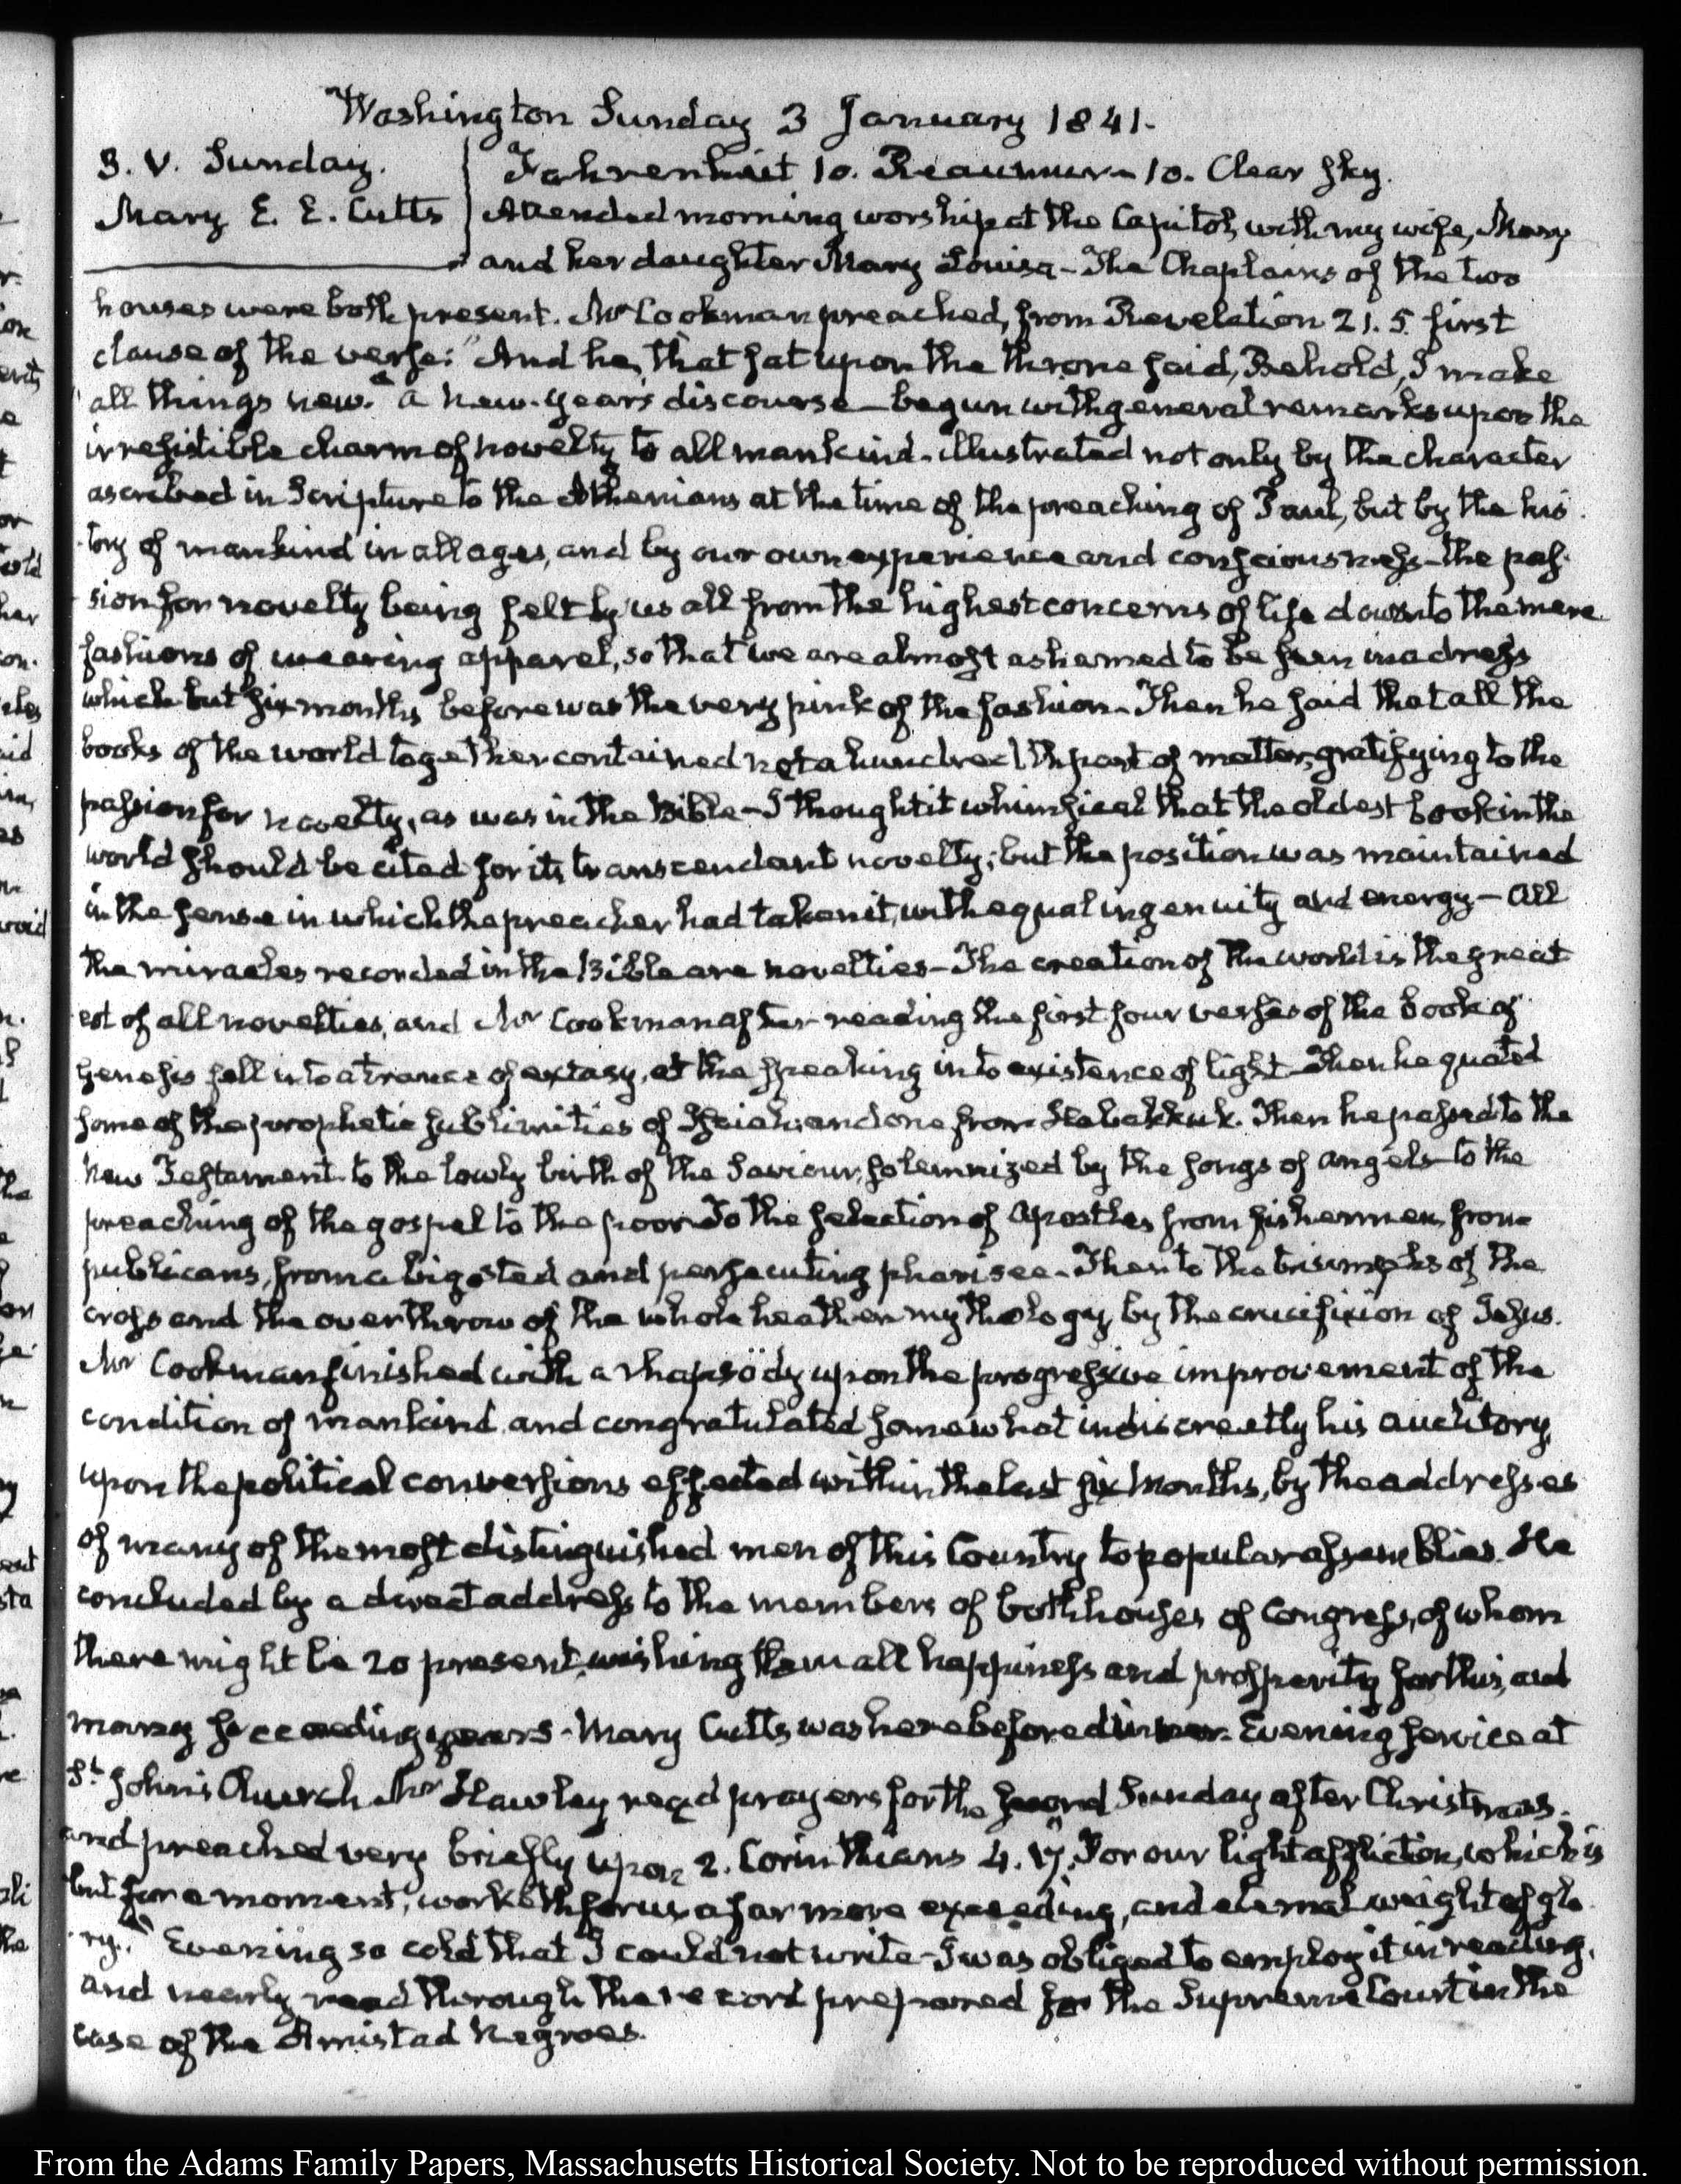 Washington Sunday 3 January 1841.
3. V. Sunday.
Mary E. E. Cutts
Fahrenheit 10. Reaumur - 10. Clear sky.
Attended morning worship at the Capitol, with my wife, Mary
and her daughter Mary Louisa - The Chaplains of the two
houses were both present. Mr Cookman preached, from Revelation 21. 5. first
clause of the verse: "And he, that sat upon the throne said, Behold, I make
all things new." a new-year's discourse - begun with general remarks upon the
irresistible charm of novelty to all mankind - illustrated not only by the character
ascribed in Scripture to the Athenians at the time of the preaching of Paul, but by the his-
-tory of mankind in all ages, and by our own experience and consciousness - the pas-
sion for novelty being felt by us all from the highest concerns of life down to the mere
fashions of wearing apparel, so that we are almost ashamed to be seen in a dress
which but six months before was the very pink of the fashion - Then he said that all the
books of the world together contained not a hundredth part of matter, gratifying to the
passion for novelty, as was in the Bible - I thought it whimsical that the oldest book in the
world should be cited for its transcendant novelty; but the position was maintained
in the sense in which the preacher had taken it, with equal ingenuity and energy - All
the miracles recorded in the Bible are novelties - The creation of the world is the great-
est of all novelties, and Mr Cookman after reading the first four verses of the book of
Genesis fell into a trance of extasy, at the speaking into existence of light - Then he quoted
some of the prophetic sublimities of Isaiah; and one from Habakkuk. Then he passed to the
New Testament - to the lowly birth of the Saviour, solemnized by the songs of angels - to the
preaching of the gospel to the poor - To the selection of Apostles from fishermen, from
publicans, from a bigoted and persecuting pharisee - Then to the triumphs of the
cross and the overthrow of the whole heathen mythology, by the crucifixion of Jesus.
Mr Cookman finished with a rhapsody upon the progressive improvement of the
condition of mankind and congratulated somewhat indiscreetly his auditory,
upon the political conversions effected within the last six months, by the addresses
of many of the most distinguished men of this Country to popular assemblies. He
concluded by a direct address to the members of both houses of Congress, of whom
there might be 20 present, wishing them all happiness and prosperity for this, and
many succeeding years - Mary Cutts was here before dinner. Evening service at
St. John's Church Mr Hawley read prayers for the second Sunday after Christmas.
and preached very briefly upon 2. Corinthians 4. 17. For our light affliction, which is
but for a moment, worketh for us a far more exceeding, and eternal weight of glo-
-ry." Evening so cold that I could not write - I was obliged to employ it in reading,
and nearly read through the record prepared for the Supreme Court in the
case of the Amistad Negroes.
From the Adams Family Papers, Massachusetts Historical Society. Not to be reproduced without permission.